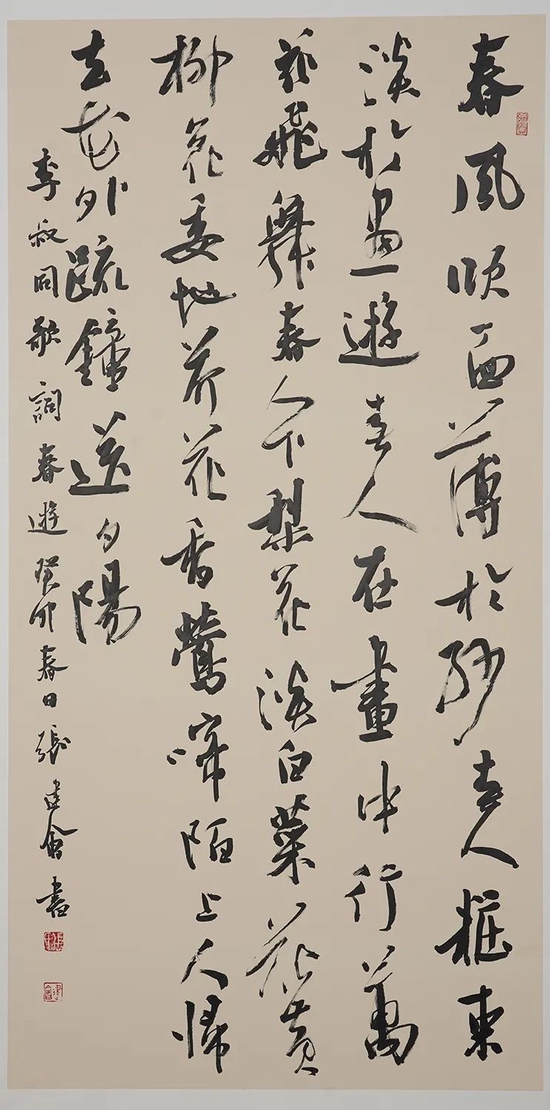 春風吹面薄於紗春人粧束
淡於畫遊春人在畫中行萬
花飛舞春人下梨花淡白菜花黄
柳花委地芥花香鶯啼陌上人歸
去花外疏鐘送夕陽
李叔同歌詞春遊癸卯春日張建會書